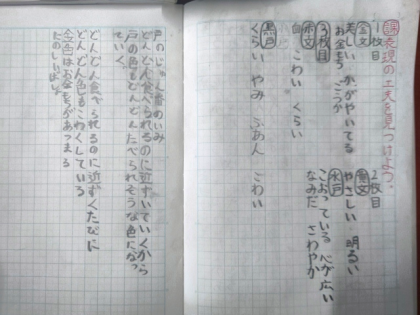 課 表現の工夫を見つけよう。
1枚目
金文
美しい かがやいてる
お金もち ごうか
2枚目
やさしい 明るい
水戸
こおっている 心が広い
なみだ さわやか
3枚目
赤文
白 こわい くらい
黒戸
くらい やみ ふあん こわい
戸のじゅん番のいみ
どんどん食べられるのに近ずいていくから
戸の色もどんどんたべられそうな色になっ
ていく。
どんどん食べられるのに近ずくたびに
どんどん色もこわくしている
金色はお金もちがあつまる